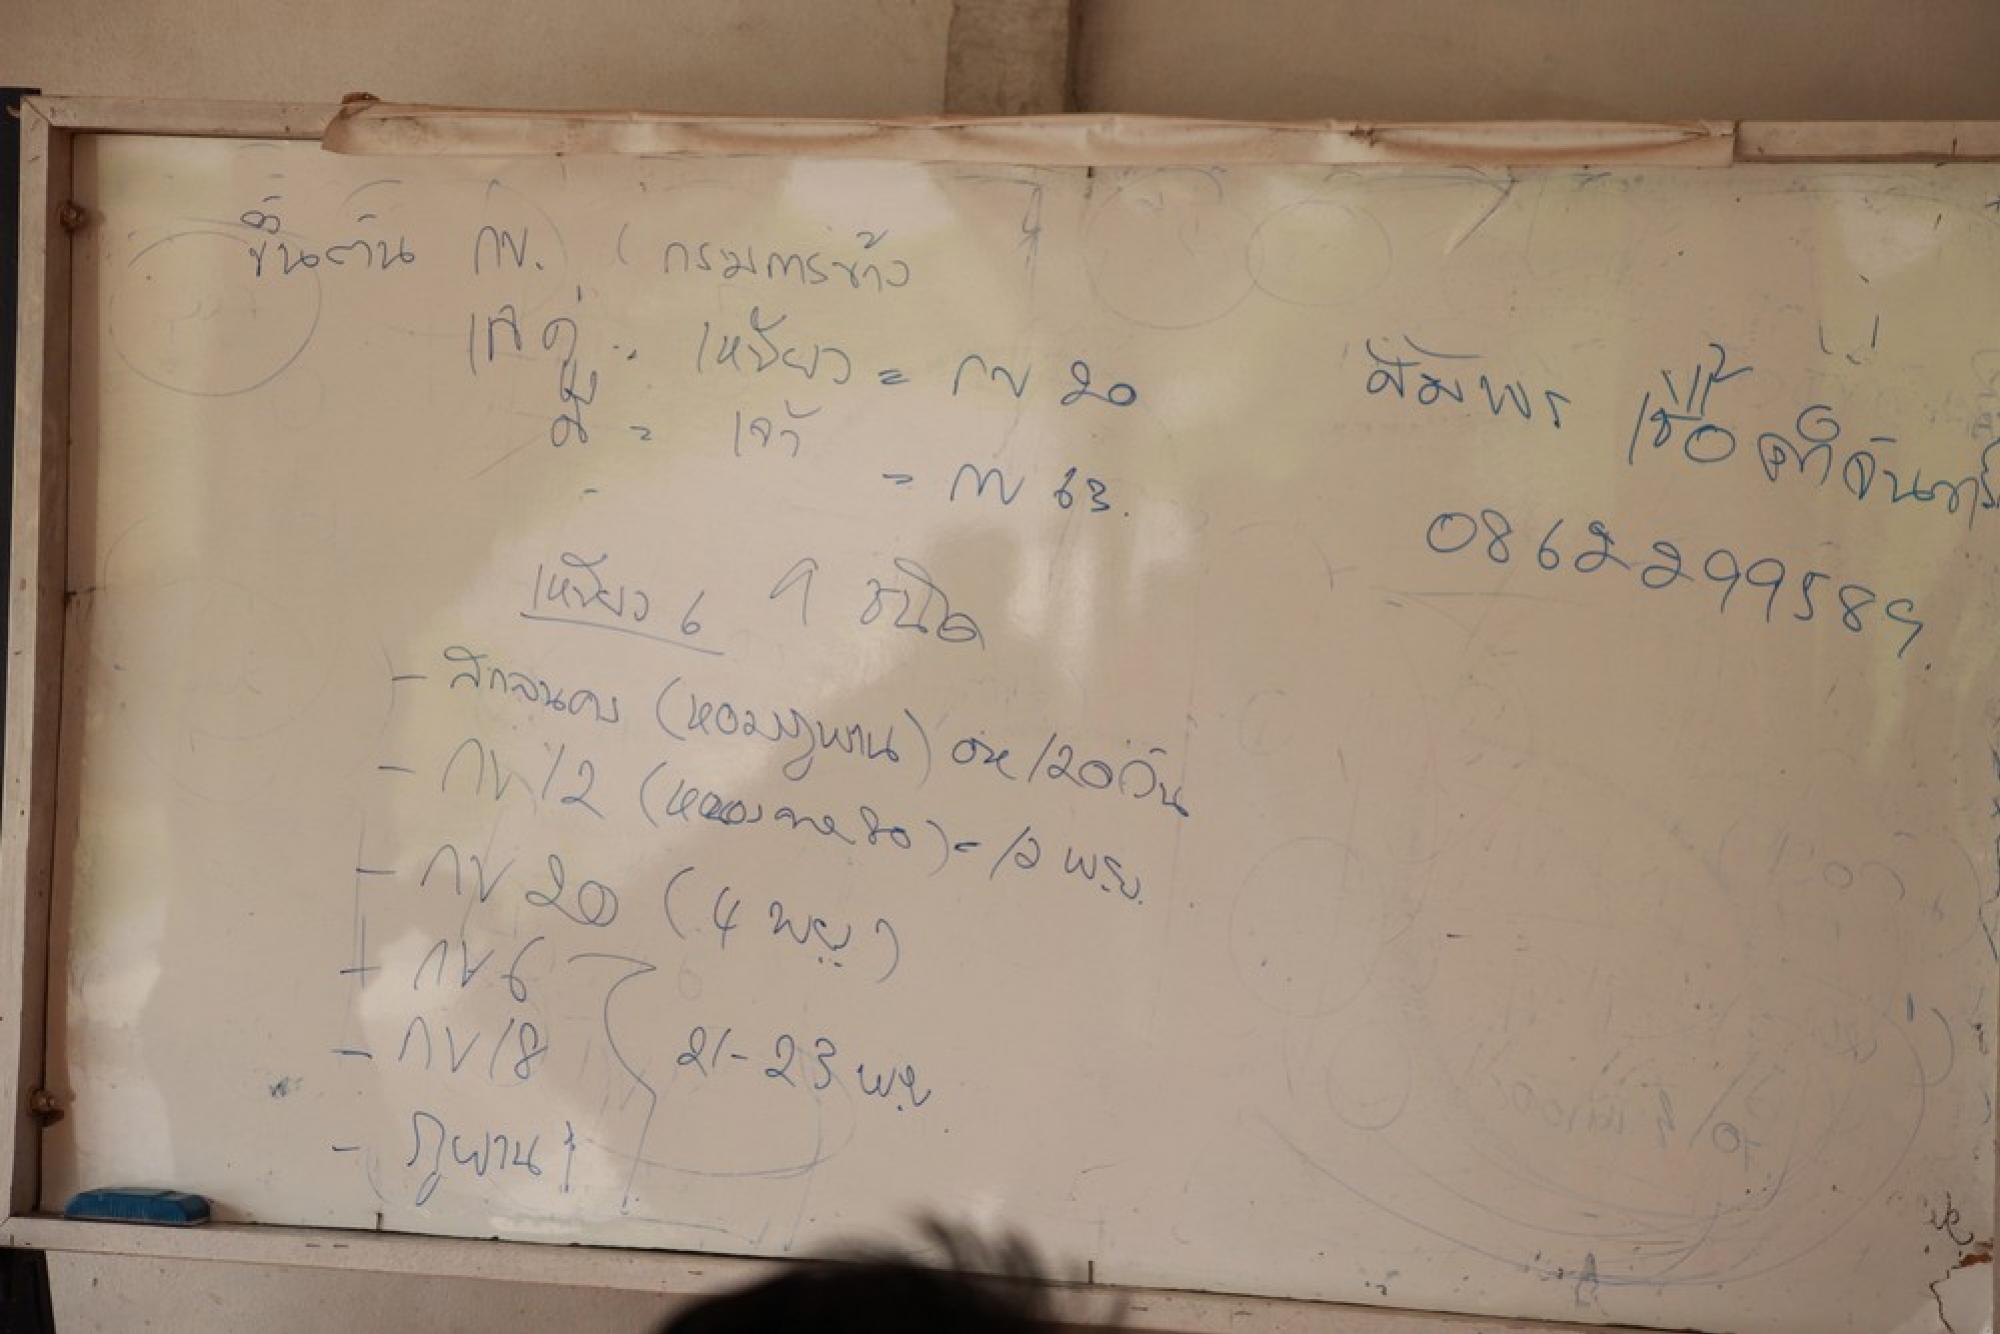 ขึ้นต้น กข. (กรมการข้าว
เลขคู่ = เหนียว = กข 20
คี่ = เจ้า
= กข 63.
เหนียว 6 ชนิด
- สกลนคร (หอมภูพาน) 120 วัน
- กข 12 (หนองคาย 80) = 12 พ.ย.
- กข 20 (4 พย)
- กข 6
- กข 18
21-23 พ.ย
- ภูพาน
สัมพร เชื้อคำจันทร์
0862299589